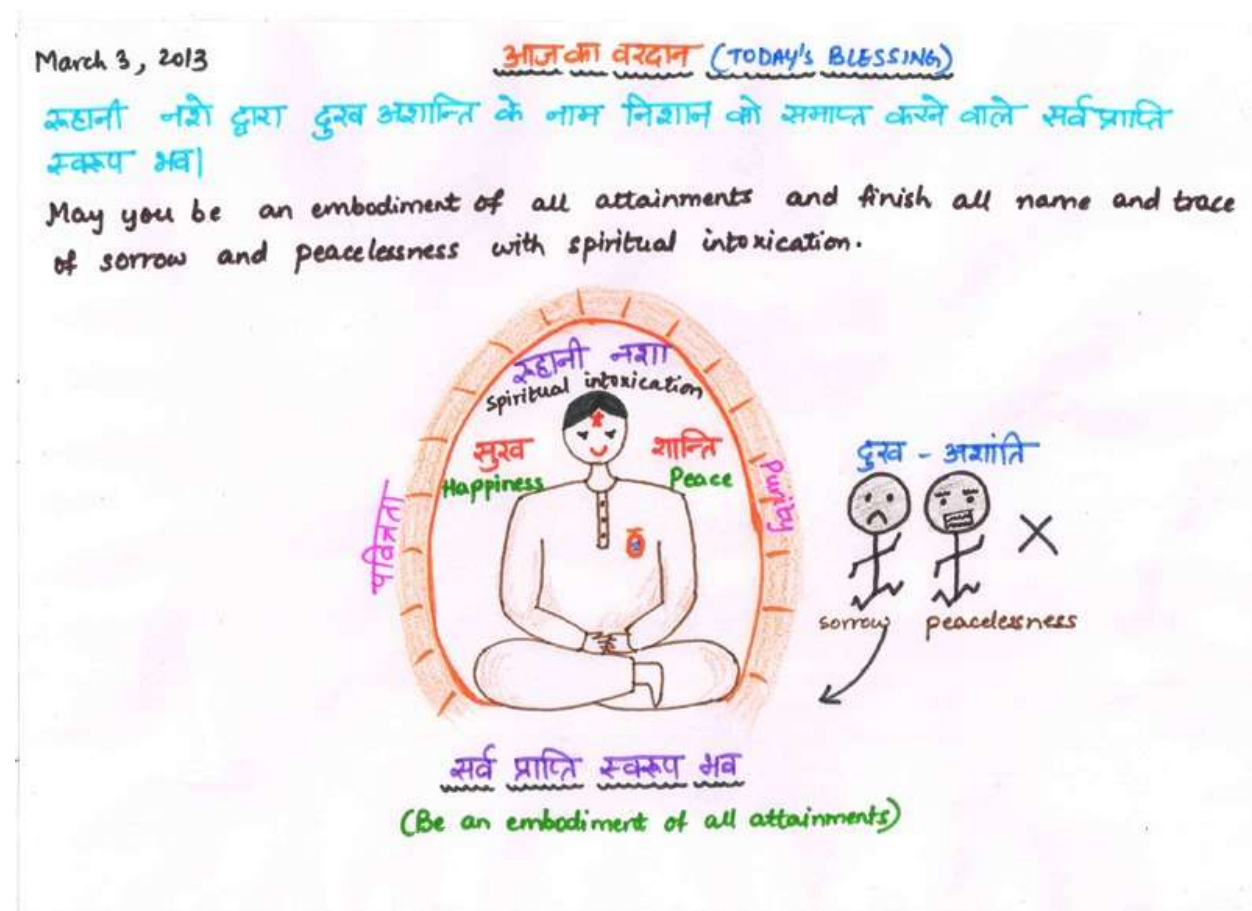 March 3, 2013
आज का वरदान (TODAY'S BLESSING)
रूहानी नशे द्वारा दुख अशान्ति के नाम निशान को समाप्त करने वाले सर्व प्राप्ति
स्वरूप भव|
May you be an embodiment of all attainments and finish all name and trace
of sorrow and peacelessness with spiritual intoxication.
रूहानी नशा
spiritual intoxication
सुख
Happiness
शान्ति
Peace
पवित्रता
Purity
दुख - अशांति
sorrow peacelessness
सर्व प्राप्ति स्वरूप भव
(Be an embodiment of all attainments)